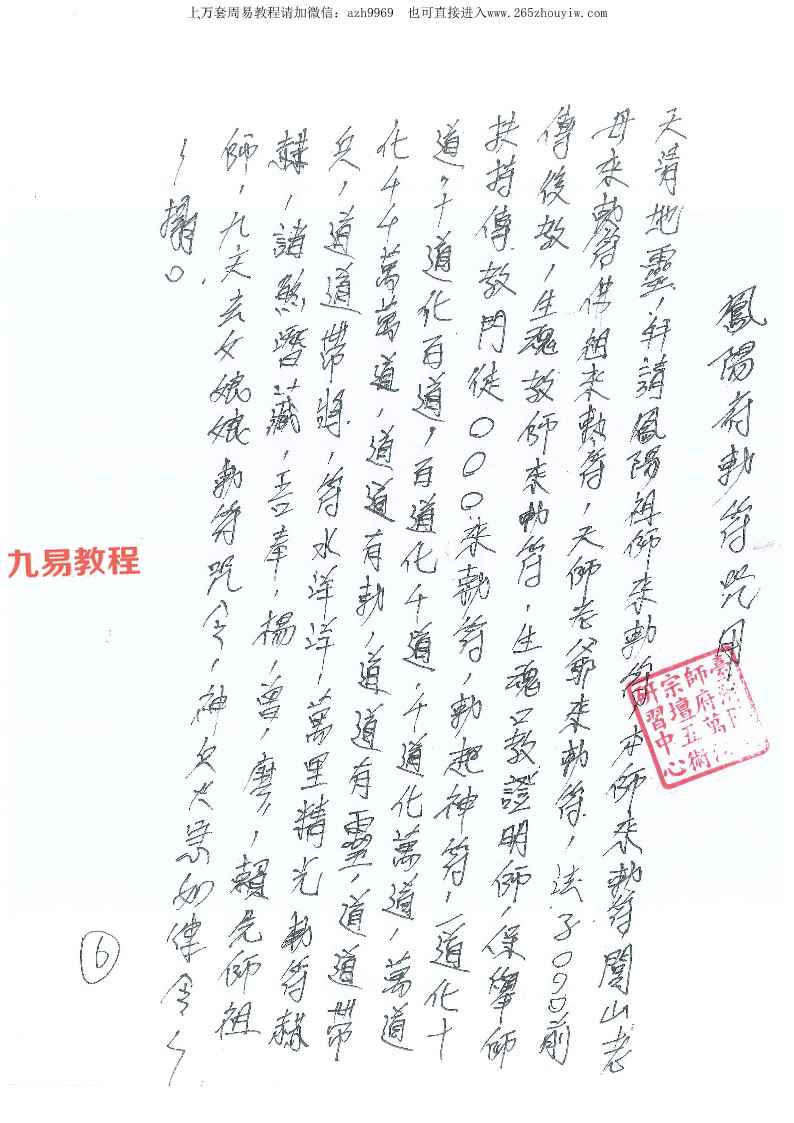 上万套周易教程请加微信：azh9969　也可直接进入www.265zhouyiw.com
鳳陽府勅符咒用
天清地靈，拜請鳳陽祖師來勅符本師來勅符閭山老
母來勅符仸祖來勅符，天師老爺來勅符，法子○○○前
傳後教，生魂教師來勅符，生魂口教證明師，保舉師
扶持傳教門徒○○○來執符，勅起神符，一道化十
道，十道化百道，百道化千道，千道化萬道，萬道
化千千萬萬道，道道有勅，道道有靈，道道帶
兵，道道帶將，符水洋洋，萬里精光勅符赫
赫，諸煞潛藏，吾奉，楊，曾，廖，賴先師祖
師，九天玄女娘娘勅符咒令，神兵火急如律令
九易教程
臺灣
師府萬法
宗壇五術
研習中心
6